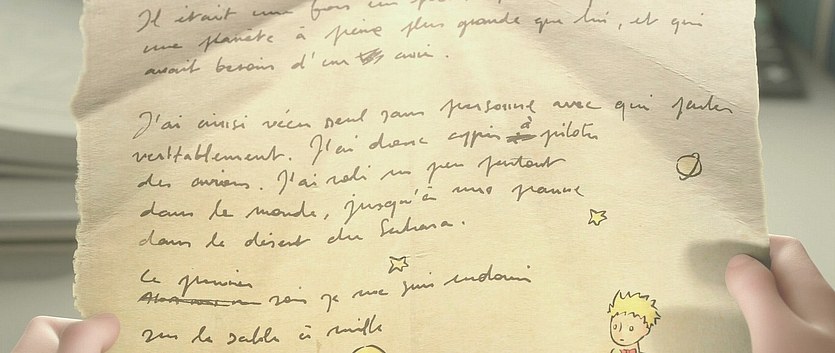 Il était une fois un
une planète à peine plus grande que lui, et qui
avait besoin d'un ami.
J'ai ainsi vécu seul sans personne avec qui parler
veritablement. J'ai donc appris à piloter
des avions. J'ai volé un peu partout
dans le monde, jusqu'à une panne
dans le désert du Sahara.
Le premier
soir je me suis endormi
sur le sable à mille